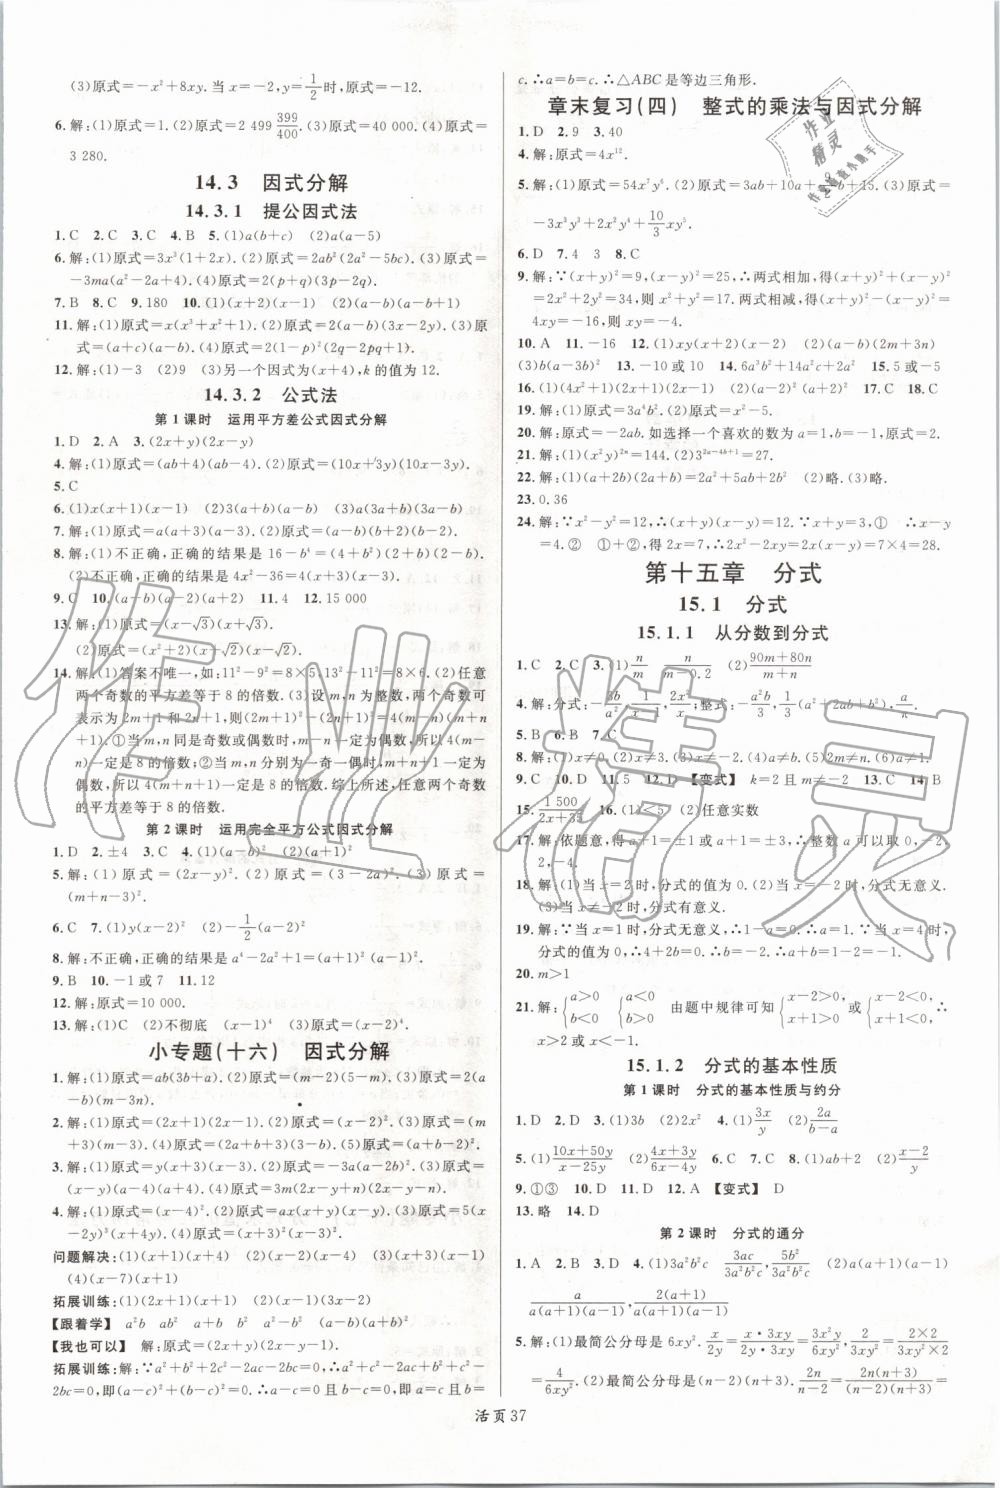 (3)原式=-x²+8xy. 当 x=-2,y=1/2时,原式=-12.
6. 解:(1)原式=1. (2)原式=2 499 399/400. (3)原式=4. (4)原式=
3 280.
14.3 因式分解
14.3.1 提公因式法
1. C 2. C 3. C 4. B 5. (1)a(b+c) (2)a(a-5)
6. 解:(1)原式=3x³(1+2x). (2)原式=2ab²(2a²-5bc). (3)原式=
-3ma(a²-2a+4). (4)原式=(p-3)(p-2).
7. B 8. C 9. 180 10. (1)(x+2)(x-1) (2)(a-b)(a-b+1)
11. 解:(1)原式=x(x³+x²+1). (2)原式=2(a-b)(3x-2y). (3)原
式=(a+c)(a-b). (4)原式=2q(1-p)²(1-2q-2pq+1).
12. 解:(1)-3 (2)9 (3)另一个因式为(x+4),k的值为12.
14.3.2 公式法
第1课时 运用平方差公式因式分解
1. D 2. A 3. (2x+y)(2x-y)
4. 解:(1)原式=(ab+4)(ab-4). (2)原式=(10x+3y)(10x-3y).
5. C
6. (1)x(x+1)(x-1) (2)3(a+b)(a-b) (3)a(3a+b)(3a-b)
7. 解:(1)原式=a(a+3)(a-3). (2)原式=(a-b)(b+2)(b-2).
8. 解:(1)不正确,正确的结果是 16-b⁴=(4+b²)(2+b)(2-b).
(2)不正确,正确的结果是 4x²-25=(2x+5)(2x-5).
9. C 10. (a-b)(a-2)(a+2) 11. 4 12. 15 000
13. 解:(1)原式=(x-√3)(x+√3).
(2)原式=(x²+2)(x+√2)(x-√2).
14. 解:(1)答案不唯一,如:11²-9²=8×5,13²-11²=8×6. (2)任意
两个奇数的平方差等于8的倍数. (3)设 m,n为整数,两个奇数可
表示为2m+1和2n+1,则(2m+1)²-(2n+1)²=4(m-n)(m+n
+1). ①当m,n同是奇数或偶数时,m-n一定为偶数,所以4(m-
n)一定是8的倍数;②当m,n分别为一奇一偶时,则m+n+1一定为
偶数,所以4(m+n+1)一定是8的倍数. 综上所述,任意两个奇数
的平方差等于8的倍数.
第2课时 运用完全平方公式因式分解
1. D 2. ±4 3. C 4. (1)(a-b)² (2)(a+1)²
5. 解:(1)原式=(2x-y)². (2)原式=(3-2a)². (3)原式=
(m+n-3)².
6. C 7. (1)y(x-2)² (2)-1/2(a-2)²
8. 解:不正确,正确的结果是 a⁴-2a²+1=(a+1)²(a-1)².
9. B 10. -1或7 11. 12
12. 解:原式=10 000.
13. 解:(1)C (2)不彻底 (x-1)⁴ (3)原式=(x-2)⁴.
小专题(十六) 因式分解
1. 解:(1)原式=ab(3b+a). (2)原式=(m-2)(5-m). (3)原式=2(a
-b)(m-3n).
2. 解:(1)原式=(2x+1)(2x-1). (2)原式=(x-2)². (3)原式=(m
+3)(m-1). (4)原式=(2a+b+3)(3-b). (5)原式=(x-2)⁴.
3. 解:(1)原式=y(x+3)(x-3). (2)原式=3a(a-2b)². (3)原式=
(x-y)(a-4)(a+4). (4)原式=3m(2x-y)(2x-y-n).
4. 解:(1)原式=(x-2)². (2)原式=ax(ax+y)(ax-y). (3)原式=5(x
-2y)(3x+4y). (4)原式=(x-y-2)².
问题解决:(1)(x+2)(x+4) (2)(x-2)(x-4) (3)(x+9)(x-1)
(4)(x-7)(x+1)
拓展训练:(1)(2x+1)(x+1) (2)(x-1)(3x-2)
【跟着学】 a²b ab² a²+b² a²-b² (a-b)(a+b)²
【我也可以】 解:原式=(2x-1)(2x-1-3y).
拓展训练:解:∵a²+b²+2c²-2ac-2bc=0,∴a²+c²-2ac+b²+c²-
2bc=0,即(a-c)²+(b-c)²=0. ∴a-c=0且b-c=0,即a=c且b=
c. ∴a=b=c. ∴△ABC是等边三角形.
章末复习(四) 整式的乘法与因式分解
1. D 2. 9 3. 40
4. 解:原式=4x¹².
5. 解:(1)原式=54x⁷y⁶. (2)原式=3ab+10a+9/2b+15. (3)原式=
-3x³y³+2x²y²+10/3xy².
6. D 7. 4 3 8. C
9. 解:∵(x+y)²=9,(x-y)²=25,∴两式相加,得(x+y)²+(x-y)²=
2x²+2y²=34,则x²+y²=17. 两式相减,得(x+y)²-(x-y)²=
4xy=-16,则xy=-4.
10. A 11. -16 12. (1)xy(x+2)(x-2) (2)(a-b)(2m+3n)
(3)b(a-3b)² 13. -10或10 14. 6a³b²+14a²b²+2a² 15. 5或-5
16. (1)(4x²+1)(2x+1)(2x-1) (2)(a-2)²(a+2)² 17. C 18. C
19. 解:(1)原式=3a⁴b². (2)原式=x²-5.
20. 解:原式=-2ab. 如选择一个喜欢的数为a=1,b=-1,原式=2.
21. 解:(1)(x²y)²ⁿ=144. (2)3²ᵃ⁻⁴ᵇ⁺¹=1.
22. 解:(1)(a+2b)(2a+b)=2a²+5ab+2b². (2)略.
23. 0.36
24. 解:∵x²-y²=12,∴(x+y)(x-y)=12. ∵x+y=3,① ∴x-y
=4. ② ①+②,得2x=7. ∴2x²-2xy=2x(x-y)=7×4=28.
第十五章 分式
15.1 分式
15.1.1 从分数到分式
1. C 2. C 3. (1)n/m (2)(90m+80n)/(m+n)
4. 解:分式:-3b/a²,1/x,2x²/x;整式:-a²b/3,1/3(a²+2ab+b²),a/π.
5. B 6. B 7. C
8. 解:(1)x≠0. (2)x≠3. (3)x≠-2. (4)a≠b. (5)2m≠n. (6)x≠±2.
9. C 10. D 11. 5 12. D 【变式】 k=2且m≠-2 13. C 14. B
15. 1 500/(2x+35) 16. (1)<5 (2)任意实数
17. 解:依题意,得a+1=±1,a+1=±3,∴整数a可以取0,-2,
2,-4.
18. 解:(1)当x=2时,分式的值为0. (2)当x=-2时,分式无意义.
(3)当x≠-2时,分式有意义.
19. 解:∵当x=1时,分式无意义,∴1-a=0. ∴a=1. ∵当x=4时,
分式的值为0,∴4+2b=0. ∴b=-2. ∴a+b=1-2=-1.
20. m>1
21. 解:{a>0 b<0 {a<0 b>0 由题中规律可知{x-2>0, x+1<0或{x-2<0, x+1>0. ∴
15.1.2 分式的基本性质
第1课时 分式的基本性质与约分
1. D 2. D 3. (1)3b (2)2x² 4. (1)3x/y (2)2a/(b-a)
5. (1)(10x+50y)/(x-25y) (2)(4x+3y)/(6x-4y) 6. C 7. C 8. (1)ab+2 (2)(x-2)/(x+2)
9. ①③ 10. D 11. D 12. A 【变式】 D
13. 略 14. D
第2课时 分式的通分
1. A 2. B 3. C 4. (1)3a²b²c 3ac/3a²b²c 5b²/3a²b²c (2)a(a+1)(a-1)
a/a(a+1)(a-1) 2(a+1)/a(a+1)(a-1)
5. 解:(1)最简公分母是6xy². x/2y=x·3xy/2y·3xy=3x²y/6xy²,2/3xy²=2×2/3xy²×2
=4/6xy². (2)最简公分母是(n-2)(n+3). 2n/(n-2)=
活页37